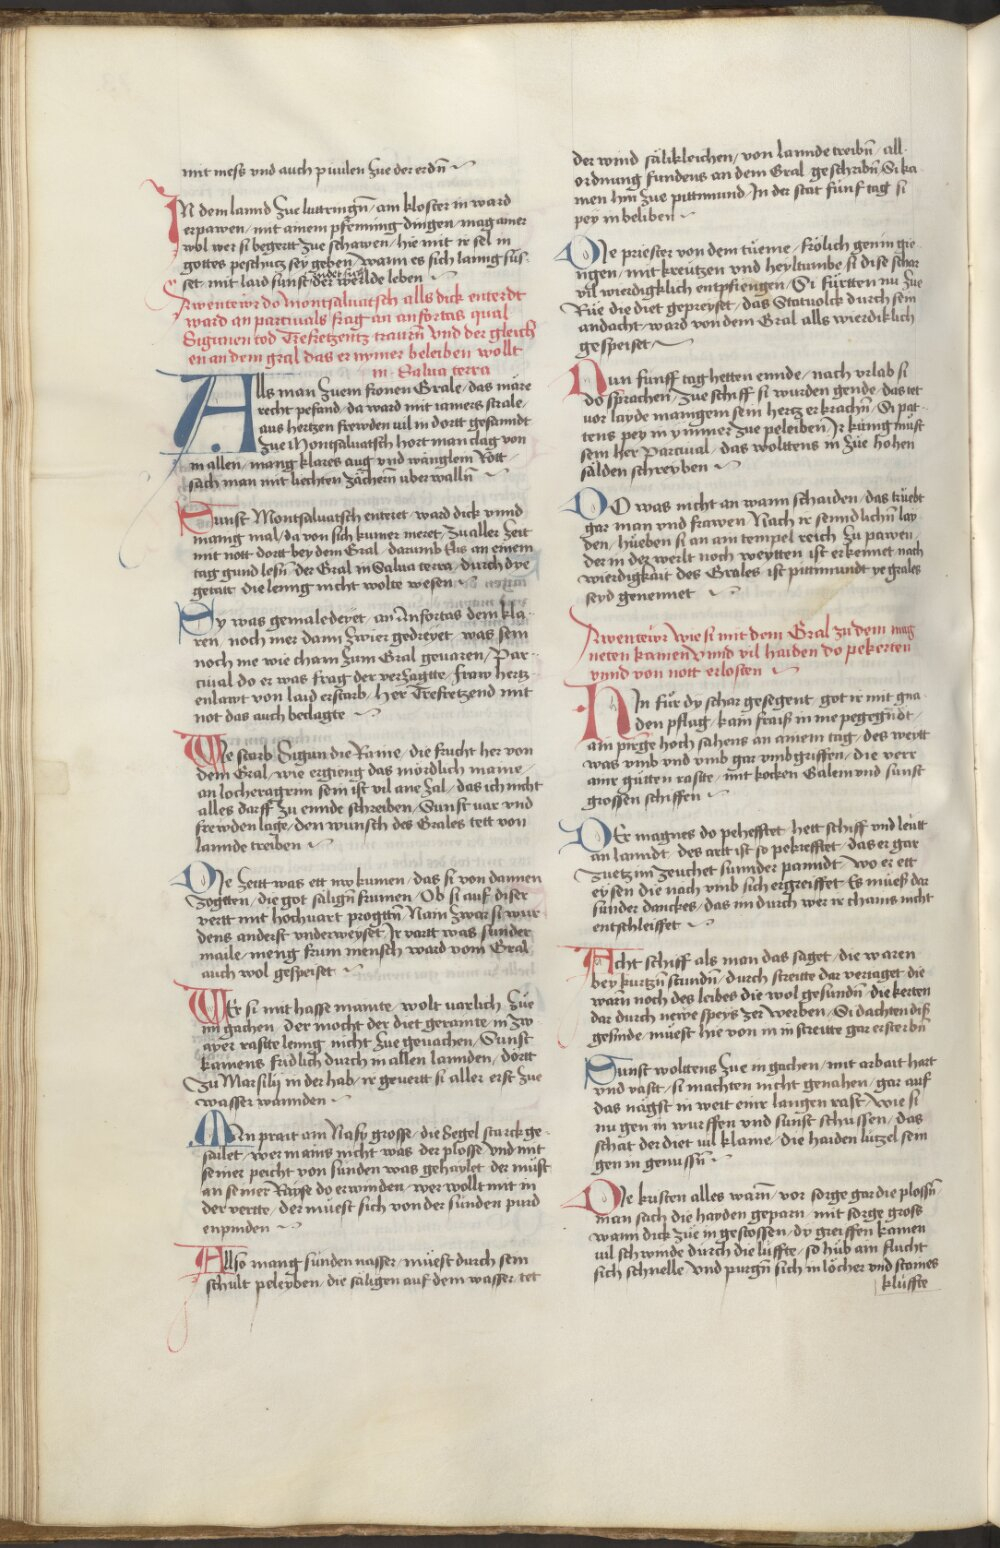 mit mess vnd auch pivilen zue der erdn̄
IN dem lannd zue luttringn̄ / am kloster in ward
erpawen / mit ainem pfenning dingen / mag ainer
wol wer si begertt zue schawen / hie mit ir sel in
gottes peschucz sey geben / wann es sich lanng sus
set / mit laid sunst der werlde leben
Awentewr do montsaluatsch alls dick entert
ward an parcivals frag an anfortas qual
Sigunen tod Trefretzentz traurn̄ vnd der gleich
en an dem gral das er nymer beleiben wollt
in Salua terra
Alls man zuem fronen Grale / das märe
recht pefand / da ward mit iamers strale /
aus hertzen frewden vil in dortt gesanndt
zue Montsaluatsch hort man clag von
in allen / mang klares aug vnd wänglein rott
sach man mit liechten zächern̄ über walln̄
Sunst Montsaluatsch enteret / ward dick vnnd
manig mal / da von sich kumer meret / zu aller zeit
mit nott dort bey dem Gral / darumb Als an einem
tag gund lesn̄ / der Gral in Salua terra / durch dye
getatt / die lenng nicht wolte wesen
Sy was gemaledeyet / an Anfortas dem kla
ren / noch mer dann zwier gedreyet / was sein
noch me wie cham zum Gral geuaren / Par
cival do er was frag der verzagtte / fraw hertz
enlawt von laid erstarb / her Trefretzend mit
not das auch beclagte
Wie starb Sigun die Raine / die frucht her von
dem Gral / wie ergieng das mordlich maine /
an locheragrim sein ist vil ane zal / das ich nicht
alles darff zu ennde schreiben / Sunst uar vnd
frewden lage / den wunsch des Grales tett von
lannde treiben
Die zeitt was ett nw kumen / das si von dannen
zogtten / die got sälign̄ frumen / Ob si auf diser
vertt mit hochuart progttn̄ / Nain zwar si wur
dens anderst vnderweyset / Ir vartt was sunder
maile / meng frum mensch ward vom Gral
auch wol gespeiset
Wer si mit hasse mainte / wolt varlich zue
im gachen / der mocht der diet geramte / in zw
ayer rastte lenng nicht zue geuachen / Sunst
kamens fridlich durch in allen lannden / dortt
zu Marsilij in der hab / ir geuertt si aller erst zue
wasser wannden
Man prait ain Nasy grosse / die Segel starck ge
sailet / wer mains nicht was der plosse / vnd mit
seiner peicht von sünden was gehaylet / der müst
an seiner Rayse do erwinden / wer wollt mit in
der vertte / der muest sich von der sünden purd
enpinden
Allso mang sünden nasser / müest durch sein
schult peleyben / die säligen auf dem wasser / tet
der wind sälikleichen / von lannde treibn̄ / all
ordnung fundens an dem Gral geschribn̄ / Si ka
men hin zue pittimund / In der stat funf tag si
pey in beliben
Die priester von dem tüeme / frölich gen in gie
ngen / mit kreutzen vnd heyltumbe / si dise schar
vil wierdigklich entpfiengen / Si fürtten nu zue
Rüe die diet gepreyset / das Statuolck durch sein
andacht / ward von dem Gral alls wierdiklich
gespeiset
Nun funff tag hetten ennde / nach vrlab si
do sprachen / zue schiff si wurden gende / das tet
vor layde manigem sein hertz erkrachn̄ / Si pat
tens pey in ymmer zue peleiben / Ir künig müst
sein her Parcival / das wolttens in züe hohen
sälden schreyben
DO was nicht an wann schaiden / das trüebt
gar man vnd frawen / Nach ir senndlichn̄ lay
den / hüeben si an ain tempel reich zu pawen
der in der werlt noch weytten ist erkennet / nach
wierdigkait des Grales / ist pittimundt ye grales
seyd genennet
Awentewr wie si mit dem Gral zu dem mag
neten kamen vnnd vil haiden do pekerten
vnnd von nott erlosten
HIn für dy schar gesegent / got ir mit gna
den pflag / kain fraiß in nie pegegn̄dt /
ain pirge hoch sahens an ainem tag / des weytt
was vmb vnd vmb gar vmbgriffen / die verr
ainr gütten rastte / mit kocken Galein vnd sunst
grossen schiffen
DEr magnes do pehefftet / hett schiff vnd leütt
an lanndt / des artt ist so pekrefftet / das er gar
zuetz im zeuchet sunnder panndt / wo er ett
eysen die nach vmb sich ergreiffet / Es müeß dar
sunder danckes / das im durch wer ir chains nicht
entschleiffet
Acht schiff als man das saget / die waren
bey kurtzn̄ stundn̄ / durch streitte dar veriaget / die
warn noch des leibes die wol gesundn̄ / die kerten
dar durch newe speys zer werben / Si dachten diß
gesinde / müest hie von in in streitte gar ersterbn̄
Sunst wolttens zue in gachen / mit arbait hart
vnd vast / si machten nicht genahen / gar auf
das nägst in weit einr langen rast / wie si
nu gen in wurffen vnd sunst schussen / das
schat der diet vil klaine / die haiden lützel sein
gen in genussn̄
Die kristen alles warn̄ / vor sorge gar die plossn̄
man sach die hayden geparn / mit sorge gross
wann dick züe in gestossen / dy greiffen kamen
vil schwinde durch die lüffte / so hüb ain flucht
sich schnelle / vnd purgn̄ sich in löcher vnd staines
klüffte